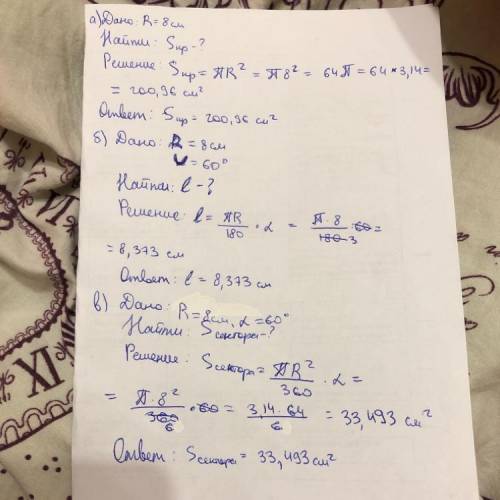 а) Дано: R = 8 см
Найти: Sкр - ?
Решение: Sкр = πR² = π8² = 64π = 64 * 3,14 =
= 200,96 см²
Ответ: Sкр = 200,96 см²
б) Дано: R = 8 см
= 60°
Найти: l - ?
Решение: l = πR/180 · α = π · 8/180 3 · 60 =
= 8,373 см
Ответ: l = 8,373 см
в) Дано: R = 8 см, α = 60°
Найти: Sсектора - ?
Решение: Sсектора = πR²/360 · α =
= π · 8²/360 6 · 60 = 3,14 · 64/6 = 33,493 см²
Ответ: Sсектора = 33,493 см²
IX